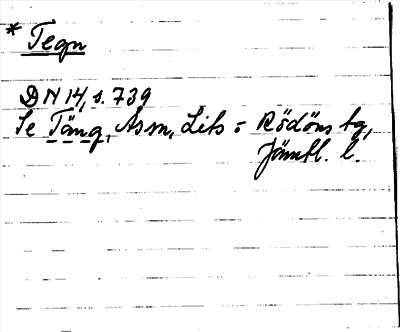 * Tegn
DN 14, s. 739
Se Täng, Åsm, Lits o Rödöns tg,
Jämtl. l.